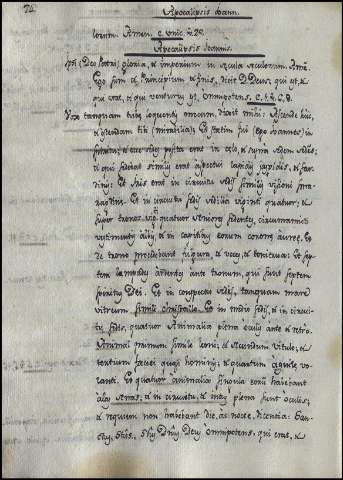 72 Apocalipsis Ioann.
lorum. Amen. c. unic. n. 25.
Apocalipsis Ioannis.
Ipsi (Deo Patri) gloria, et imperium in sæcula sæculorum. Amē.
Ego sum et Principium et finis, dicit D. Deus, qui est, et
qui erat, et qui venturus est, omnipotens. c. 1. n. 6. 8.
Vox tanquam tubæ loquentis mecum dicit mihi: Ascende huc,
et ostendam tibi (mirabilia); Et statim fui (ego Ioannes) in
spiritu: et ecce sedes posita erat in cœlo, et supra sedem sedens;
et qui sedebat similis erat aspectui lapidis jaspidis, et sar-
dinis: Et Iris erat in circuitu sedis similis visioni sma-
ragdinæ. Et in circuitu sedis sedilia viginti quatuor; et
super thronos viginti quatuor seniores sedentes, circumamicti
vestimentis albis, et in capitibus eorum coronæ aureæ. Et
de trono procedebant fulgura, et voces, et tonitrua: Et sep-
tem lampades ardentes ante tronum, qui sunt septem
spiritus Dei. Et in conspectu sedis, tanquam mare
vitreum simile cristallo. Et in medio sedis, et in circui-
tu sedis, quatuor Animalia plena oculis ante et retro.
Animal primum simile leoni; et secundum vitulo; et
tertium faciei quasi hominis; et quartum aquilæ vo-
lanti. Et quatuor animalia singula eorum habebant
alas senas; et in circuitu, et intus plena sunt oculis;
et requiem non habebant die, ac nocte, dicentia: San-
ctus, Stus, Stus Dnus Deus omnipotens, qui erat, et